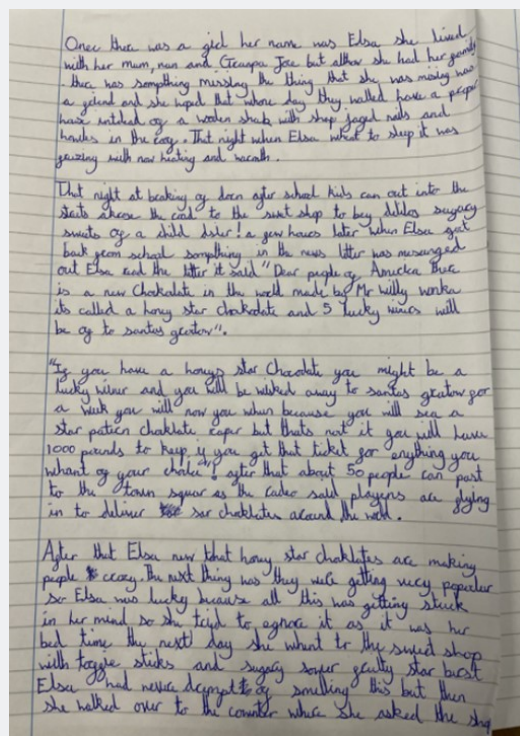 Once there was a girl her name was Elsa she lived
with her mum, nan and Grampa Joe but althow she had her family
there was something missing the thing that she was missing was
a friend and she hoped that whone day they walled have a proper
house instead of a wooden shak with sharp jaged nails and
howles in the roof. That night when Elsa whent to sleep it was
freezing with now heating and warmth.
That night at breaking of dorn after school kids can out into the
streets across the road to the sweet shop to buy sugary
sweets of a child a few hours later when Elsa got
back from school sompthing in the news letter was
out Elsa and the letter it said "Dear people of America there
is a new Chokalate in the world made by Mr willy wonka
its called a hony star chokalate and 5 lucky winers will
be of to santas".
"If you have a honys star Chocolate you might be a
lucky winer and you will be wisked away to santas for
a week you will now you when because you will see a
star patern choklate raper but thats not it you will have
1000 pounds to keep if you get that ticket for anything you
whant of your choice"! after that about 50 people ran past
to the town squar as the radeo said are flying
in to deliver star choklates around the world.
After that Elsa new that hony star choklates are making
people crazy. The next thing was they were getting very populer
so Elsa was lucky because all this was getting stuck
in her mind so she tryd to egnore it as it was her
bed time the next day she whant to the sweet shop
with toffee sticks and sugary souer fruity star burst
Elsa had never drempt of smelling this but then
she walked over to the counter where she asked the shop